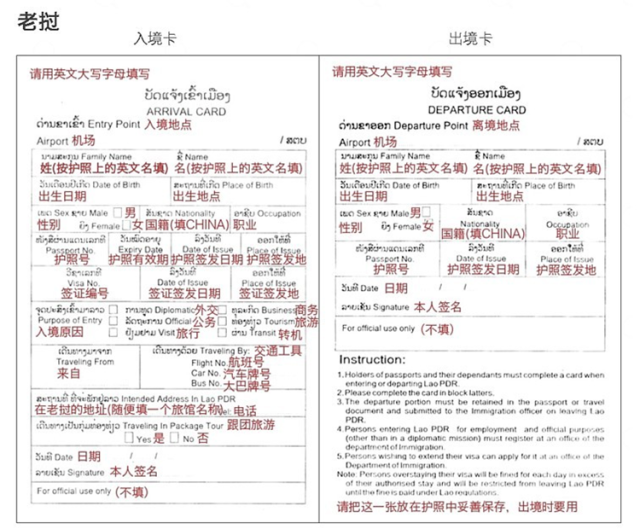 老挝
入境卡
出境卡
请用英文大写字母填写
ບັດແຈ້ງເຂົ້າເມືອງ
ARRIVAL CARD
ດ່ານຂາເຂົ້າ Entry Point 入境地点
Airport 机场 / ສຕບ
ນາມສະກຸນ Family Name ຊື່ Name
姓(按护照上的英文填) 名(按护照上的英文填)
ວັນເດືອນປີເກີດ Date of Birth ສະຖານທີ່ເກີດ Place of Birth
出生日期 出生地点
ເພດ Sex ຊາຍ Male 男 ສັນຊາດ Nationality ອາຊີບ Occupation
性别 ຍິງ Female 女 国籍(填CHINA) 职业
ໜັງສືຜ່ານແດນເລກທີ ວັນໝົດອາຍຸ ລົງວັນທີ ອອກໃຫ້ທີ່
Passport No. Expiry Date Date of Issue Place of Issue
护照号 护照有效期 护照签发日期 护照签发地
ວີຊາເລກທີ ລົງວັນທີ ອອກໃຫ້ທີ່
Visa No. Date of Issue Place of Issue
签证编号 签证签发日期 签证签发地
ຈຸດປະສົງເຂົ້າມາລາວ ການທູດ Diplomatic 外交 ທຸລະກິດ Business 商务
Purpose of Entry ລັດຖະການ Official 公务 ທ່ອງທ່ຽວ Tourism 旅游
入境原因 ຢ້ຽມຢາມ Visit 旅行 ຜ່ານ Transit 转机
ເດີນທາງມາຈາກ ເດີນທາງດ້ວຍ Traveling By: 交通工具
Traveling From Flight No. 航班号
来自 Car No. 汽车牌号
Bus No. 大巴牌号
ສະຖານທີ່ ທີ່ຈະພັກຢູ່ລາວ Intended Address In Lao PDR
在老挝的地址(随便填一个旅馆名称) Tel: 电话
ເດີນທາງເປັນກຸ່ມທ່ອງທ່ຽວ Traveling In Package Tour 跟团旅游
Yes 是 No 否
ວັນທີ Date 日期 / /
ລາຍເຊັນ Signature 本人签名
For official use only (不填)
请用英文大写字母填写
ບັດແຈ້ງອອກເມືອງ
DEPARTURE CARD
ດ່ານຂາອອກ Departure Point 离境地点
Airport 机场 / ສຕບ
ນາມສະກຸນ Family Name ຊື່ Name
姓(按护照上的英文填) 名(按护照上的英文填)
ວັນເດືອນປີເກີດ Date of Birth ສະຖານທີ່ເກີດ Place of Birth
出生日期 出生地点
ເພດ Sex ຊາຍ Male 男 ສັນຊາດ ອາຊີບ
性别 ຍິງ Female 女 Nationality Occupation
国籍(填CHINA) 职业
ໜັງສືຜ່ານແດນເລກທີ ລົງວັນທີ ອອກໃຫ້ທີ່
Passport No. Date of Issue Place of Issue
护照号 护照签发日期 护照签发地
ວັນທີ Date 日期 / /
ລາຍເຊັນ Signature 本人签名
For official use only (不填)
Instruction:
1.Holders of passports and their dependants must complete a card when
entering or departing Lao PDR.
2.Please complete the card in block latters.
3.The departure portion must be retained in the passport or travel
document and submitted to the Immigration officer on leaving Lao
PDR.
4.Persons entering Lao PDR for employment and official purposes
(other than in a diplomatic mission) must register at an office of the
department of Immigration.
5.Persons wishing to extend their visa can apply for it at an office of the
Department of Immigration.
Note: Persons overstaying their visa will be fined for each day in excess
of their authorised stay and will be restricted from leaving Lao PDR
until the fine is paid under Lao regulations.
请把这一张放在护照中妥善保存，出境时要用